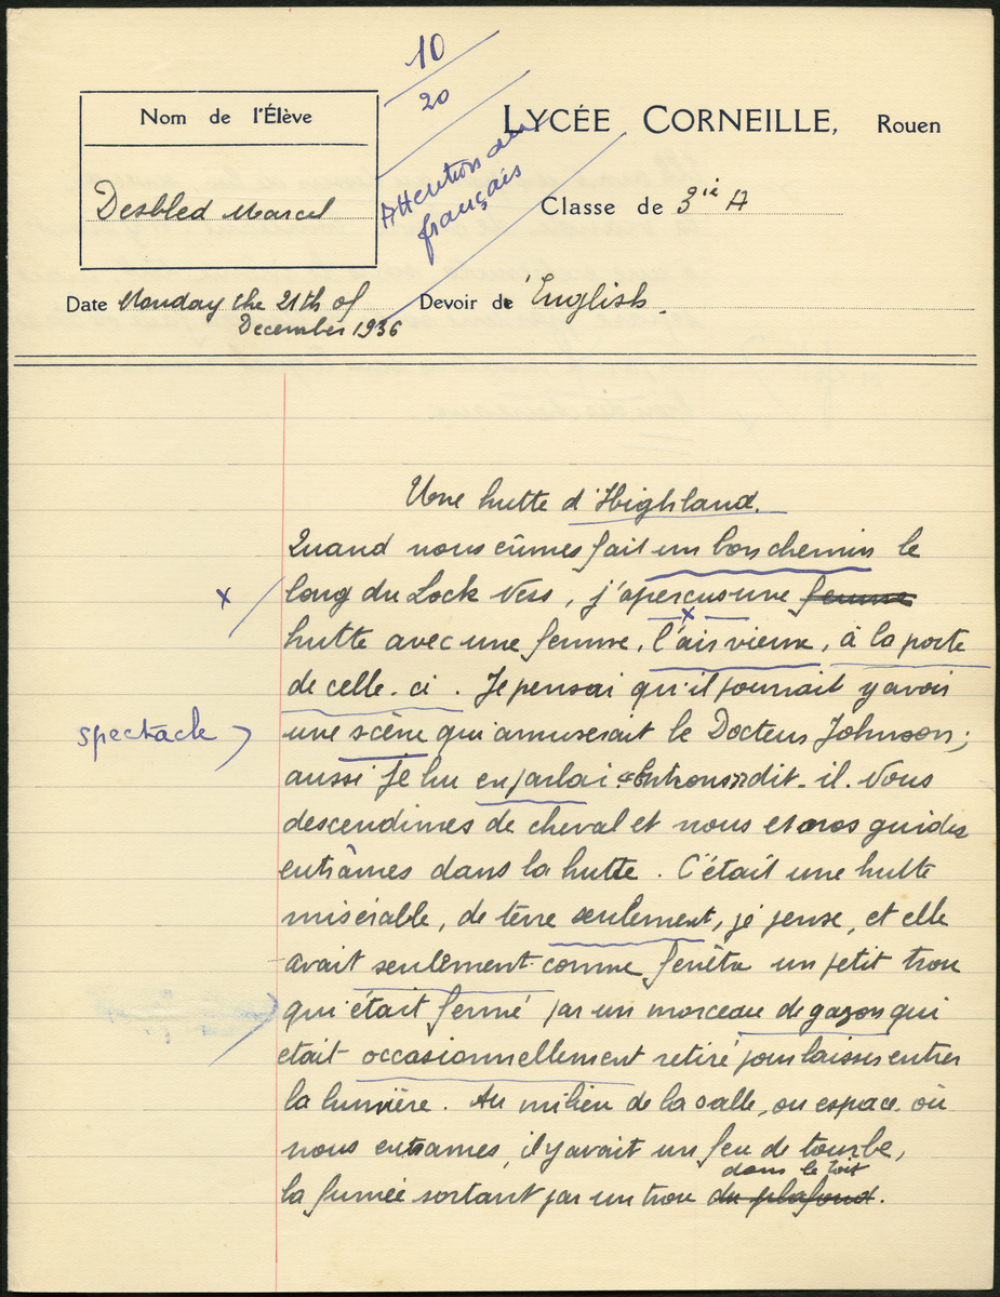 10
20
Nom de l'Élève
LYCÉE CORNEILLE, Rouen
Desbled Marcel
Attention au
français
Classe de 3ie A
Date Monday the 21th of
December 1936
Devoir de English.
Une hutte d'Highland.
Quand nous eûmes fait un bon chemin le
x
long du Lock Ness, j'apercus une femme
x
hutte avec une femme, l'air vieux, à la porte
de celle-ci. Je pensai qu'il pourrait y avoir
spectacle
une scène qui amuserait le Docteur Johnson;
aussi je lui en parlai. "Entrons" dit-il. Nous
descendimes de cheval et nous et nos guides
entrâmes dans la hutte. C'était une hutte
misérable, de terre seulement, je pense, et elle
avait seulement comme fenêtre un petit trou
qui était fermé par un morceau de gazon qui
etait occasionnellement retiré pour laisser entrer
la lumière. Au milieu de la salle, ou espace où
nous entrames, il y avait un feu de tourbe,
dans le toit
la fumée sortant par un trou du plafond.